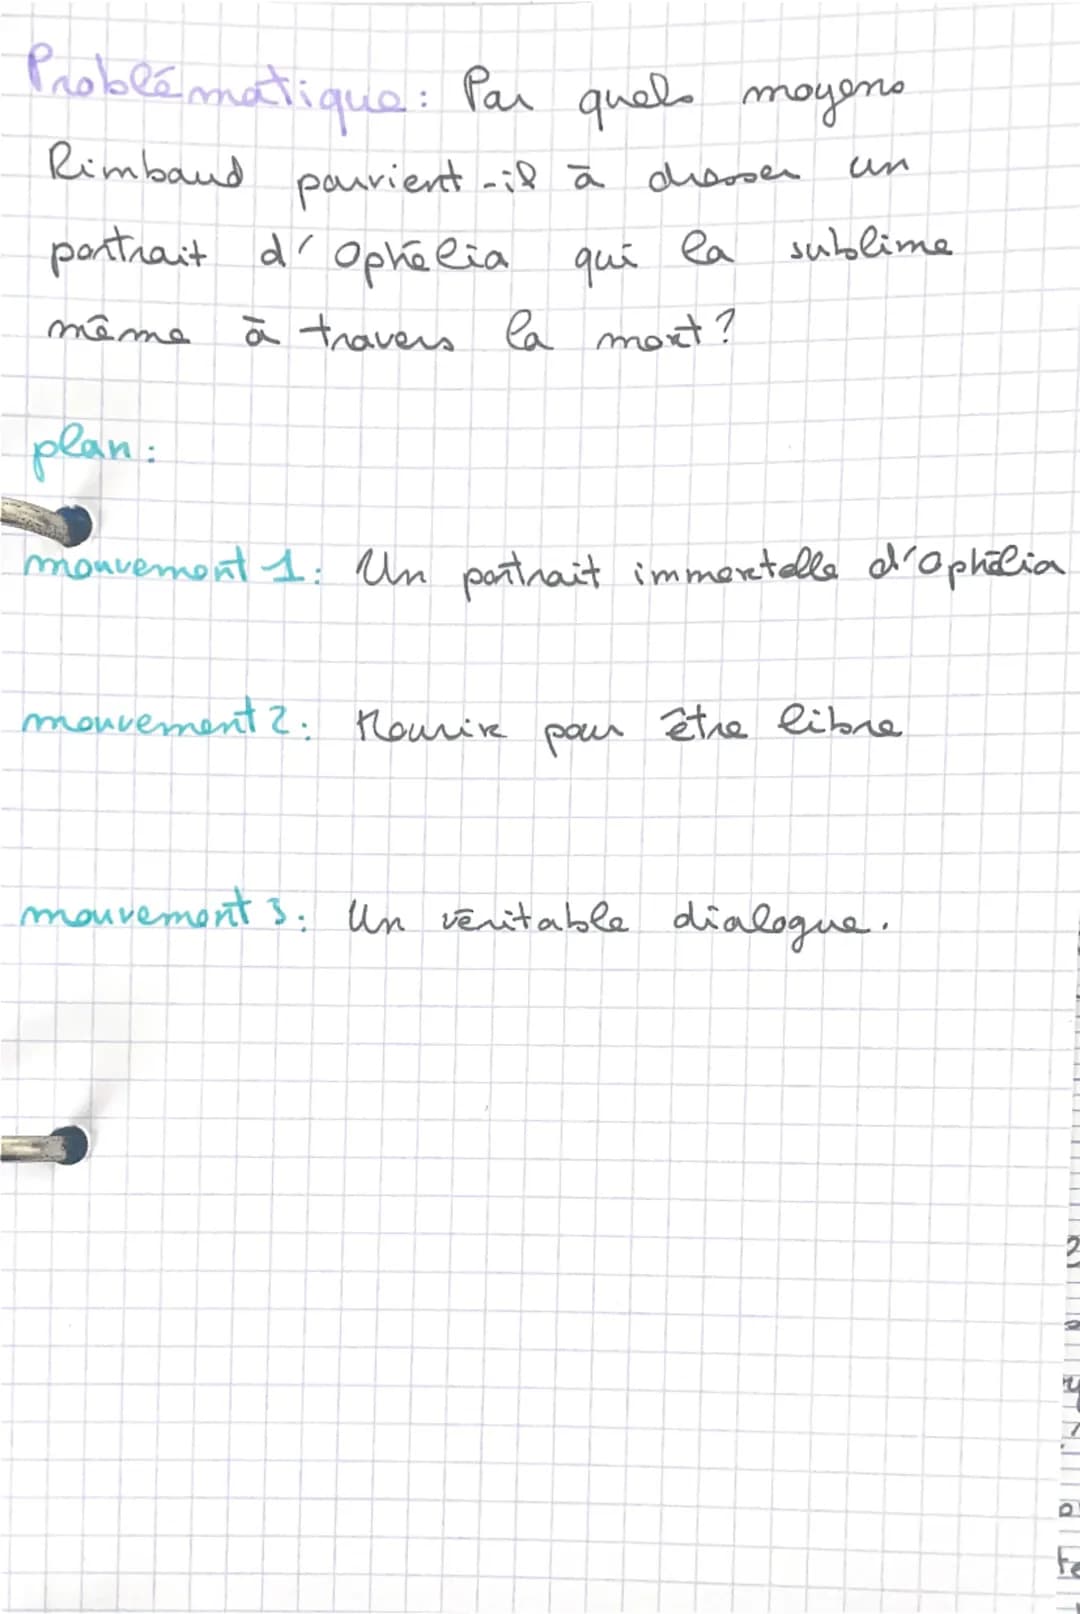 Problématique : Par quels moyens
Rimbaud parvient-il à dresser un
portrait d'Ophélia qui la sublime
même à travers la mort ?
plan :
mouvement 1 : Un portrait immortelle d'Ophélia
mouvement 2 : Mourir pour être libre
mouvement 3 : Un véritable dialogue.